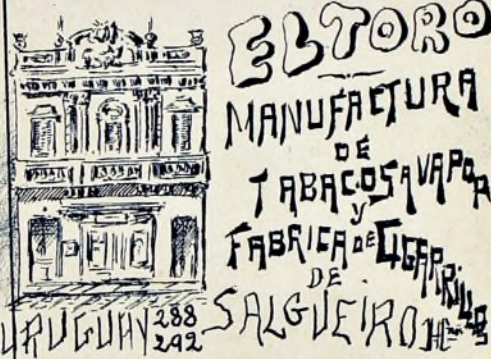 EL TORO
MANUFACTURA
DE
TABACOS A VAPOR
Y
FABRICA DE CIGARRILLOS
DE
SALGUEIRO
URUGUAY 288
292